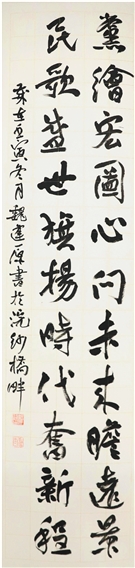 黨繪宏圖心向未來瞻遠景
民歌盛世旗揚時代奮新程
庚寅冬月魏建厚書於浣紗橋畔